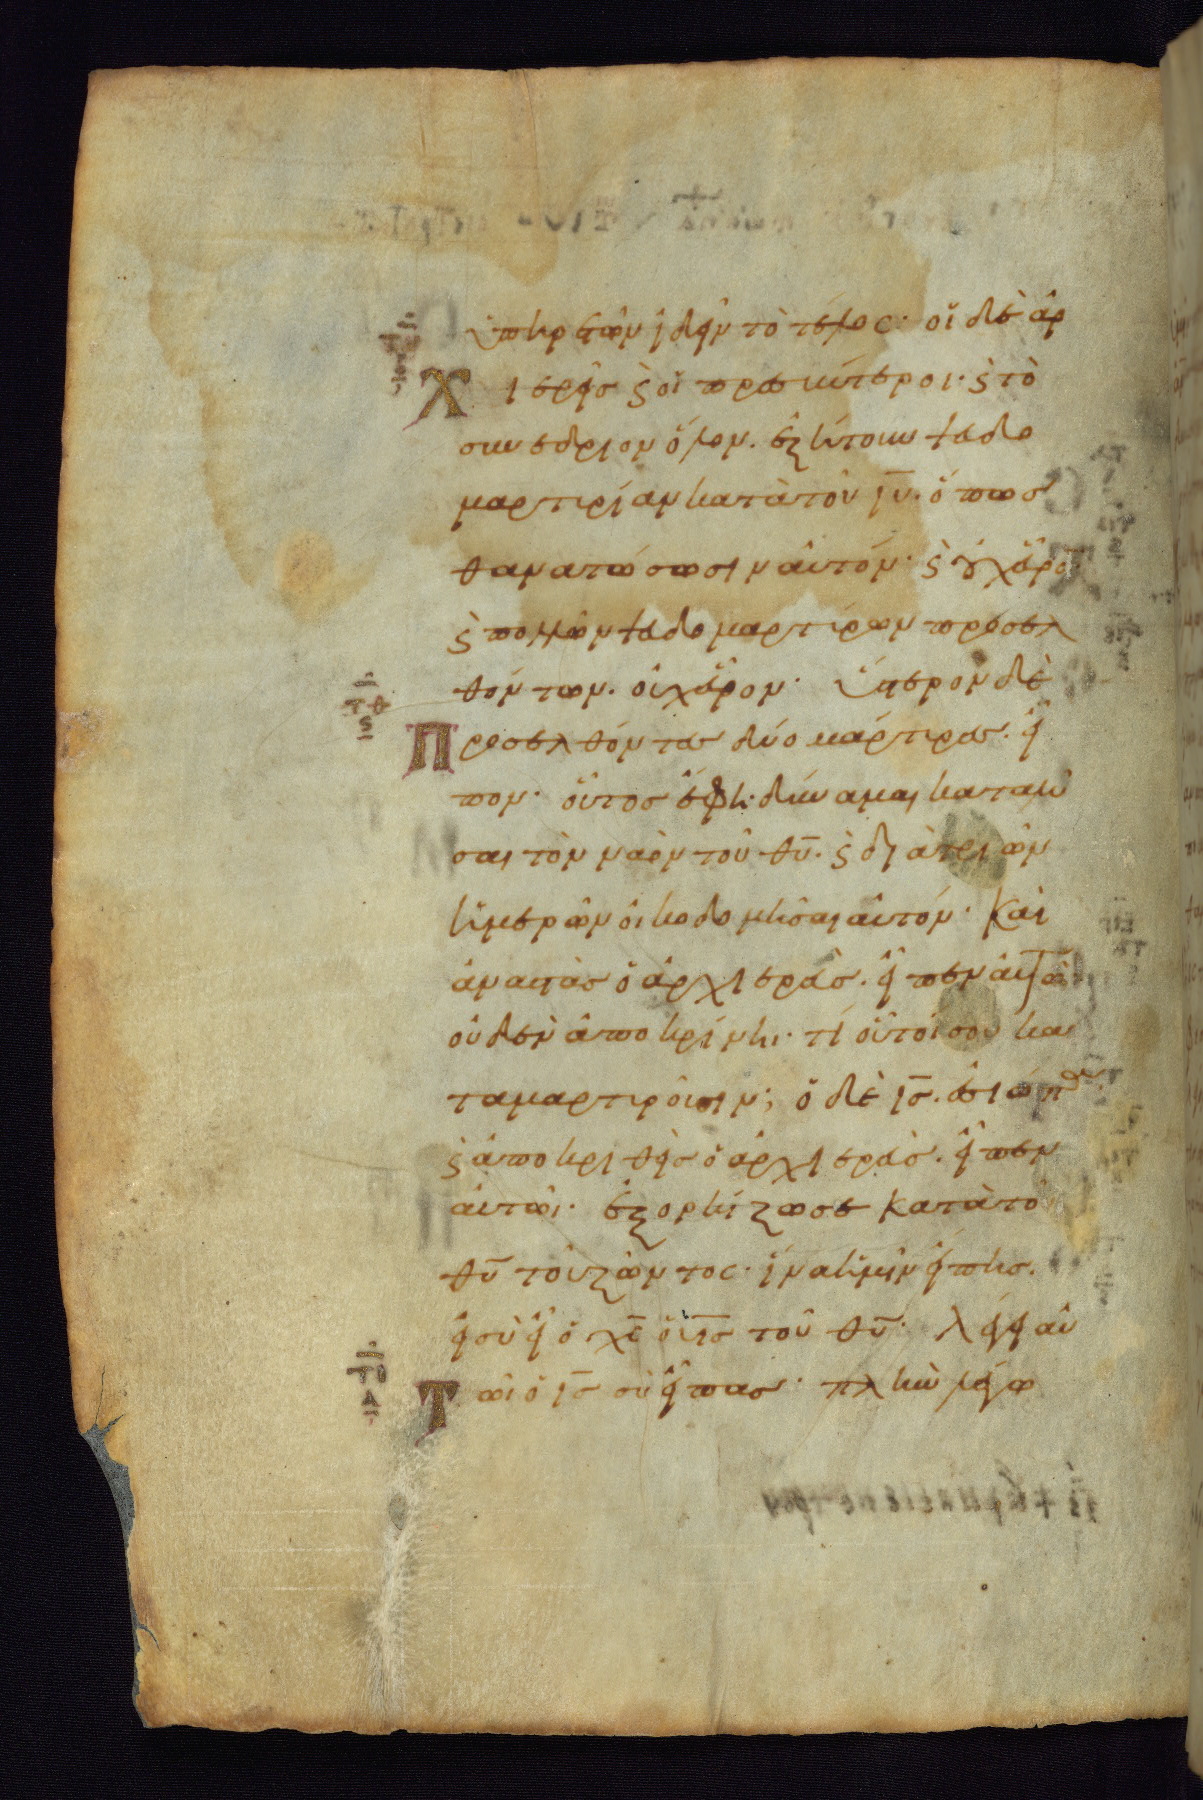 ὑπηρετῶν ἰδεῖν τὸ τέλος· οἱ δὲ ἀρ
Χ ιερεῖς ϗ οἱ πρεσβύτεροι· ϗ τὸ
συνέδριον ὅλον. ἐζήτουν ψευδο
μαρτυρίαν κατὰ τοῦ ιῦ. ὅπως
θανατώσωσιν αὐτόν· ϗ οὐχ εὗρο
ϗ πολλῶν ψευδομαρτύρων προσελ
θόντων. οὐχ εὗρον· ὕστερον δὲ
Π ροσελθόντες δύο μάρτυρες. εἶ
πον· οὗτος ἔφη· δύναμαι καταλῦ
σαι τὸν ναὸν τοῦ θῦ. ϗ διὰ τριῶν
ἡμερῶν οἰκοδομῆσαι αὐτόν· Καὶ
ἀναστὰς ὁ ἀρχιερεὺς. εἶπεν αὐτῶ·
οὐδὲν ἀποκρίνη· τί οὗτοί σου κα
ταμαρτυροῦσιν; ὁ δὲ ις. ἐσιώπα·
ϗ ἀποκριθεὶς ὁ ἀρχιερεὺς. εἶπεν
αὐτῶι· ἐξορκίζω σε κατὰ το
θῦ τοῦ ζῶντος· ἵνα ἡμῖν εἴπης.
εἰ σὺ εἶ ὁ χς ὁ υις τοῦ θῦ· λέγει αὐ
Τ ῶι ὁ ις σὺ εἶπας· πλὴν λέγω